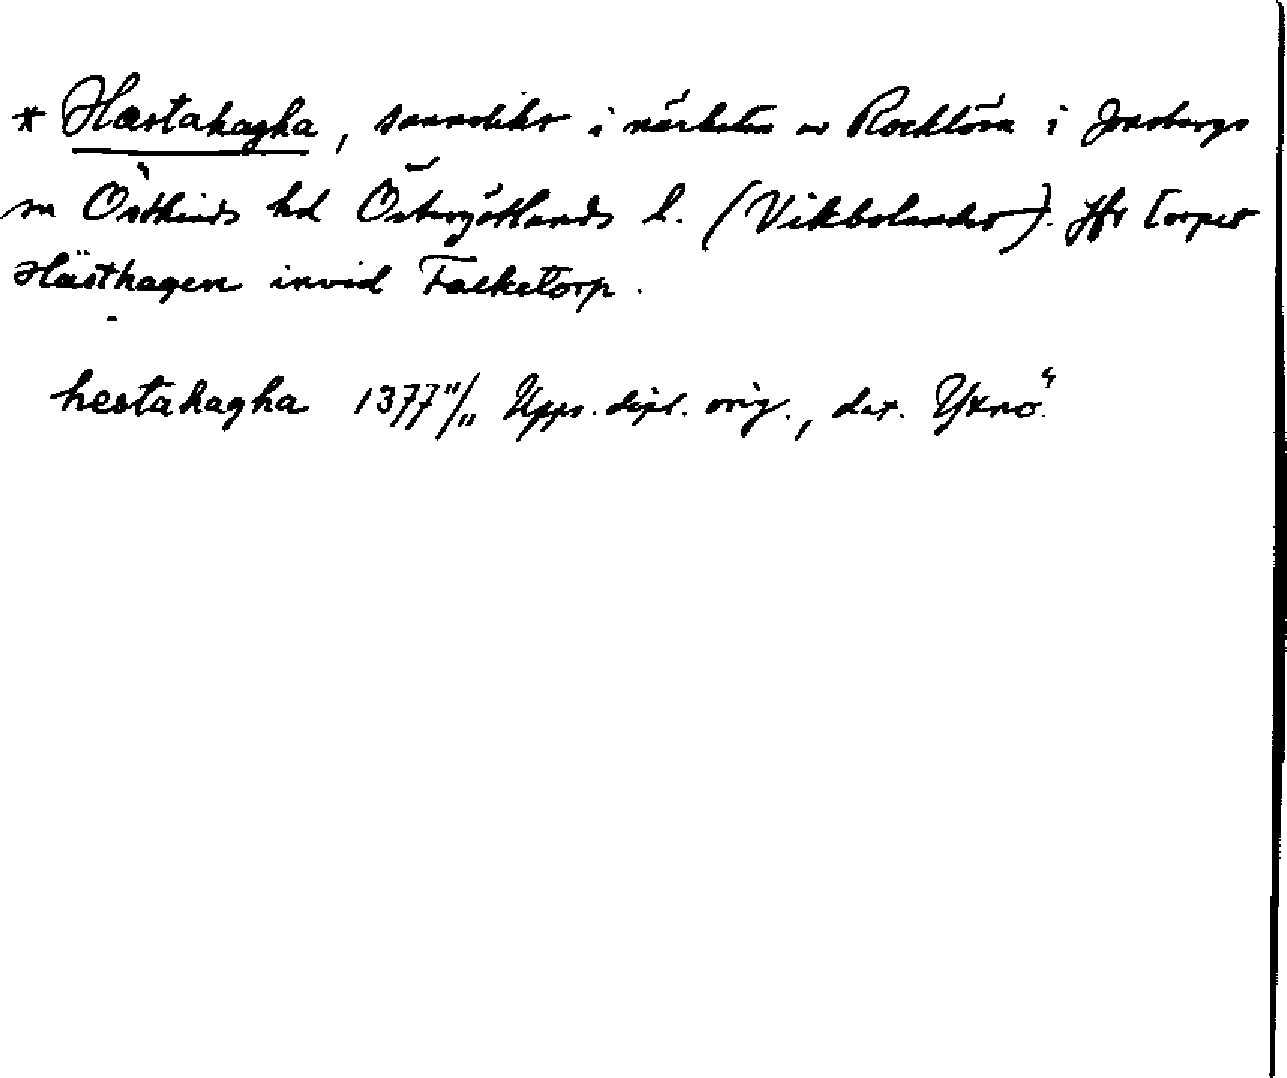 * Hæstahagha, sannolikt i närheten av Rocklösa i Jonsbergs
sn Östkinds hd Östergötlands l. (Vikbolandet). Jfr torpet
Hästhagen invid Falketorp.
hestahagha 1377 11/11 Upps. dipl. orig., dat. Yxnö.